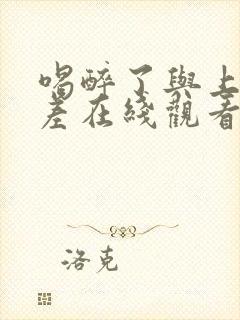 喝醉了與上
差在綫觀看
洛克